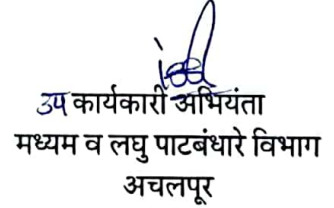 उप कार्यकारी अभियंता
मध्यम व लघु पाटबंधारे विभाग
अचलपूर